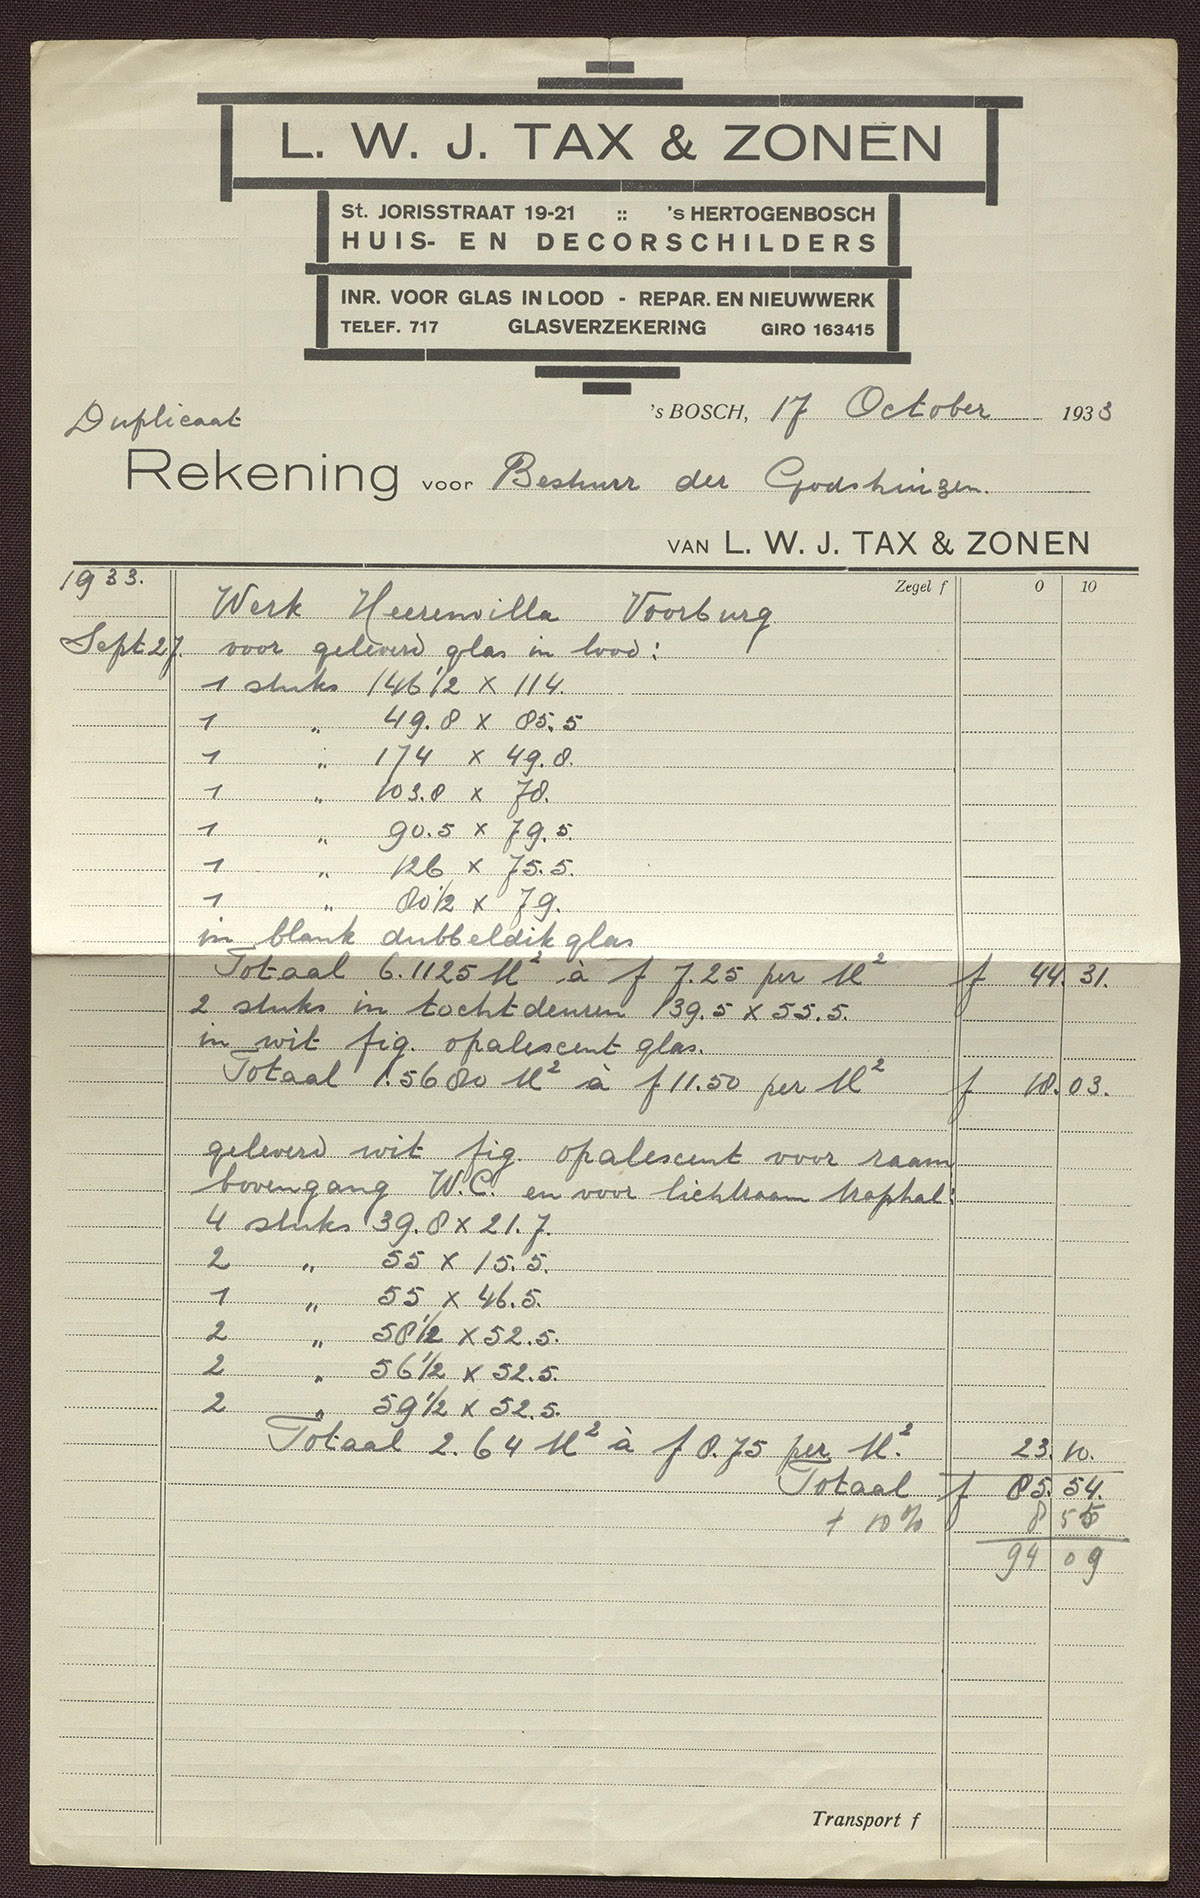 L. W. J. TAX & ZONEN
St. JORISSTRAAT 19-21 :: 's HERTOGENBOSCH
HUIS- EN DECORSCHILDERS
INR. VOOR GLAS IN LOOD - REPAR. EN NIEUWWERK
TELEF. 717 GLASVERZEKERING GIRO 163415
's BOSCH, 17 October 1933
Duplicaat
Rekening voor Bestuur der Godshuizen.
VAN L. W. J. TAX & ZONEN
1933. Zegel f 0 10
Werk Heerenvilla Voorburg
Sept 27. voor geleverd glas in lood:
1 stuks 146 1/2 x 114.
1 " 49.8 x 85.5
1 " 174 x 49.8.
1 " 103.8 x 78.
1 " 90.5 x 79.5.
1 " 126 x 75.5.
1 " 80 1/2 x 79.
in blank dubbeldik glas
Totaal 6.1125 M² à f 7.25 per M² f 44.31.
2 stuks in tochtdeuren 139.5 x 55.5.
in wit fig. opalescent glas.
Totaal 1.5680 M² à f 11.50 per M² f 18.03.
geleverd wit fig. opalescent voor raam
bovengang W.C. en voor lichtraam traphal:
4 stuks 39.8 x 21.7.
2 " 55 x 15.5.
1 " 55 x 46.5.
2 " 58 1/2 x 52.5.
2 " 56 1/2 x 52.5.
2 " 59 1/2 x 52.5.
Totaal 2.64 M² à f 8.75 per M². 23.10.
Totaal f 85.54.
+ 10% 8 55
94 09
Transport f